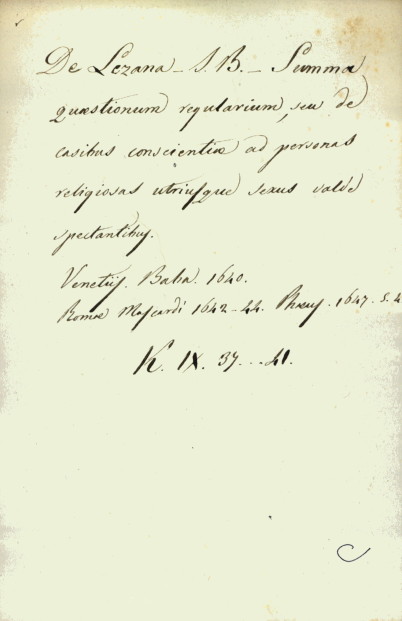 De Lezana - J. B. - Summa
quæstionum regularium, seu de
casibus conscientiæ ad personas
religiosas utriusque sexus valdè
spectantibus.
Venetiis. Baba. 1640.
Romæ Mascardi 1642-44. Phæus. 1647. 5. 4
K. IX. 37...41.